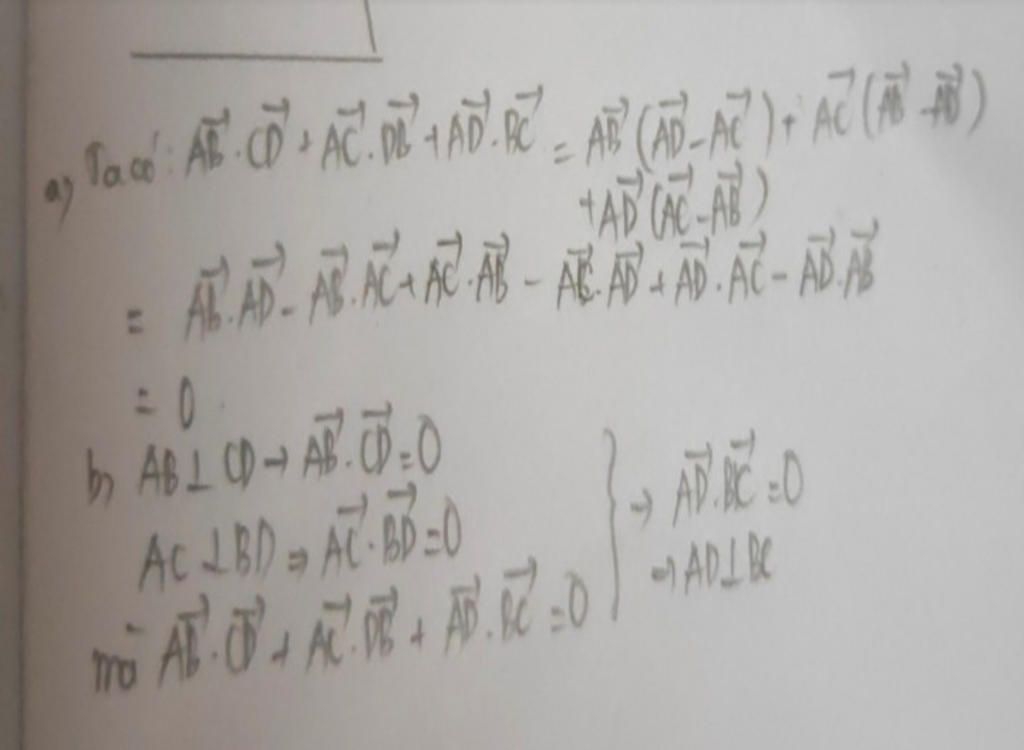 a, Ta có: $\overrightarrow{AB}.\overrightarrow{CD} + \overrightarrow{AC}.\overrightarrow{DB} + \overrightarrow{AD}.\overrightarrow{BC} = \overrightarrow{AB}(\overrightarrow{AD} - \overrightarrow{AC}) + \overrightarrow{AC}(\overrightarrow{AB} - \overrightarrow{AD})$
$+ \overrightarrow{AD}(\overrightarrow{AC} - \overrightarrow{AB})$
$= \overrightarrow{AB}.\overrightarrow{AD} - \overrightarrow{AB}.\overrightarrow{AC} + \overrightarrow{AC}.\overrightarrow{AB} - \overrightarrow{AC}.\overrightarrow{AD} + \overrightarrow{AD}.\overrightarrow{AC} - \overrightarrow{AD}.\overrightarrow{AB}$
$= 0$
b, $AB \perp CD \rightarrow \overrightarrow{AB}.\overrightarrow{CD} = 0$
$AC \perp BD \Rightarrow \overrightarrow{AC}.\overrightarrow{BD} = 0$
mà $\overrightarrow{AB}.\overrightarrow{CD} + \overrightarrow{AC}.\overrightarrow{DB} + \overrightarrow{AD}.\overrightarrow{BC} = 0$
$\rightarrow \overrightarrow{AD}.\overrightarrow{BC} = 0$
$\rightarrow AD \perp BC$